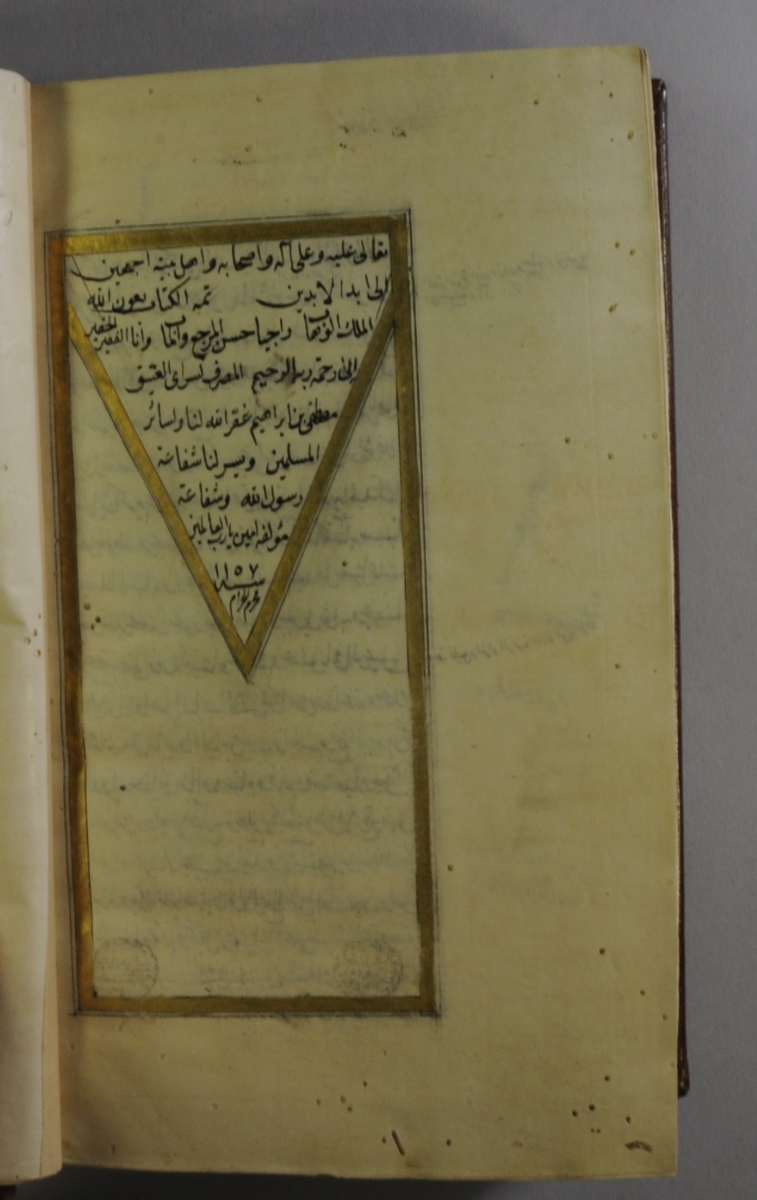 تعالى عليه وعلى آله واصحابه واهل بيته اجمعين
الى ابد الابدين تمه الكتاب بعون الله
الملك الوهاب راجيا حسن المرجع والماب وانا الفقير الحقير
الى رحمة ربه الرحيم المصرف لسراى العتيق
مصطفى بن ابراهيم غفر الله لنا ولسائر
المسلمين ويسر لنا شفاعة
رسول الله وشفاعة
مؤلفه امين يا رب العالمين
سنه ١١٥٧